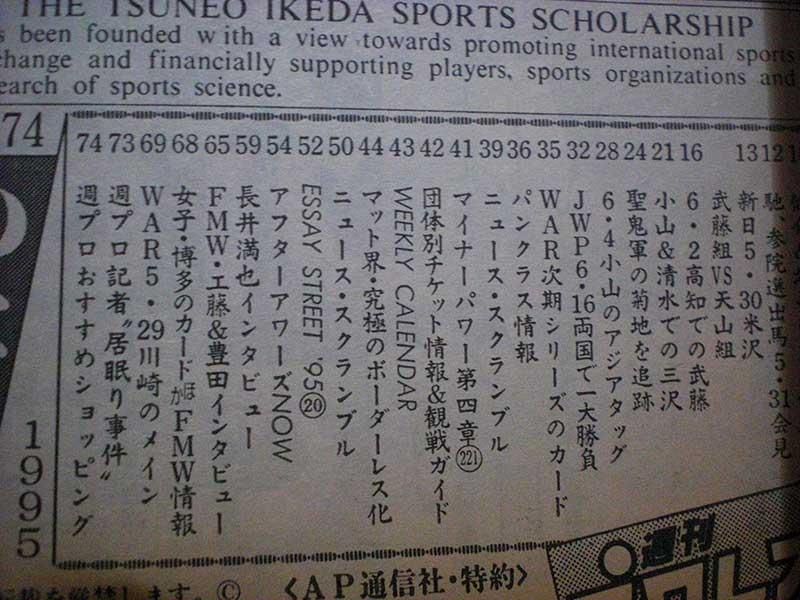 THE TSUNEO IKEDA SPORTS SCHOLARSHIP
been founded with a view towards promoting international sports
change and financially supporting players, sports organizations and
earch of sports science.
74
馳、参院選出馬5・31会見 12
新日5・30米沢 13
武藤組VS天山組
6・2高知での武藤 16
小山&清水での三沢 21
聖鬼軍の菊地を追跡 24
6・4小山のアジアタッグ 28
JWP6・16両国で一大勝負 32
WAR次期シリーズのカード 35
パンクラス情報 36
ニュース・スクランブル 39
マイナーパワー第四章(221) 41
団体別チケット情報&観戦ガイド 42
WEEKLY CALENDAR 43
マット界・究極のボーダーレス化 44
ニュース・スクランブル 50
ESSAY STREET '95⑳ 52
アフターアワーズNOW 54
長井満也インタビュー 59
FMW・工藤&豊田インタビュー 65
女子・博多のカードほかFMW情報 68
WAR5・29川崎のメイン 69
週プロ記者〝居眠り事件〟 73
週プロおすすめショッピング 74
1995
ます。©
〈AP通信社・特約〉
週刊
プロレス